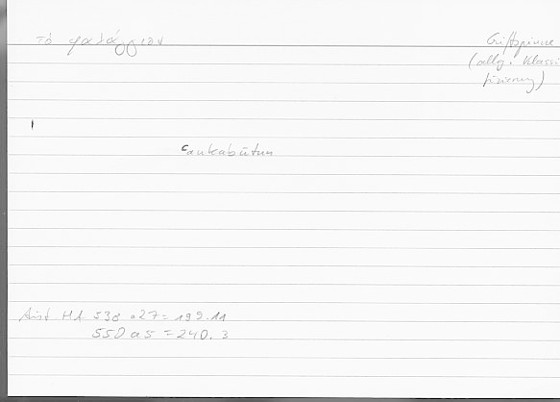 τὸ φαλάγγιον
Giftspinne
(allg. Klassi
fizierung)
ʿankabūtun
Arist HA 538 a27 = 199.11
550 a5 = 240.3